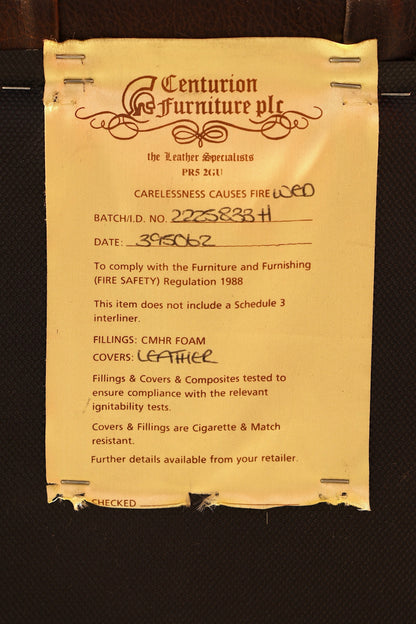 Centurion
Furniture plc
the Leather Specialists
PR5 2GU
CARELESSNESS CAUSES FIRE WED
BATCH/I.D. NO. 2225833H
DATE: 395062
To comply with the Furniture and Furnishing
(FIRE SAFETY) Regulation 1988
This item does not include a Schedule 3
interliner.
FILLINGS: CMHR FOAM
COVERS: LEATHER
Fillings & Covers & Composites tested to
ensure compliance with the relevant
ignitability tests.
Covers & Fillings are Cigarette & Match
resistant.
Further details available from your retailer.
CHECKED